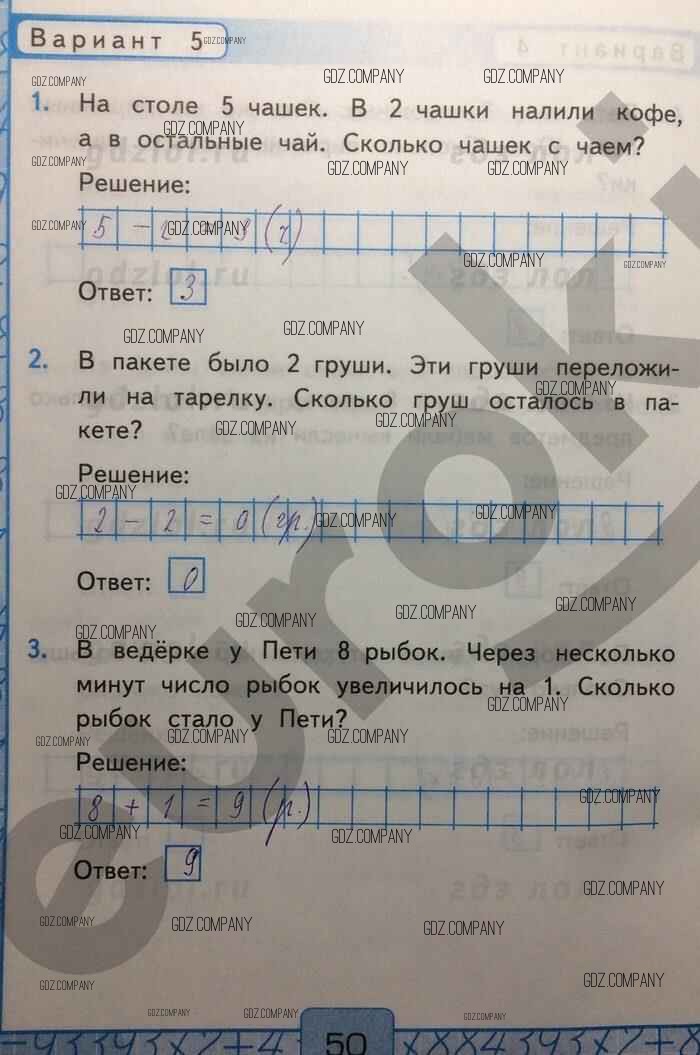 Вариант 5
1. На столе 5 чашек. В 2 чашки налили кофе,
а в остальные чай. Сколько чашек с чаем?
Решение:
5 - 2 = 3 (ч)
Ответ: 3
2. В пакете было 2 груши. Эти груши переложи-
ли на тарелку. Сколько груш осталось в па-
кете?
Решение:
2 - 2 = 0 (гр.)
Ответ: 0
3. В ведёрке у Пети 8 рыбок. Через несколько
минут число рыбок увеличилось на 1. Сколько
рыбок стало у Пети?
Решение:
8 + 1 = 9 (р.)
Ответ: 9
50
GDZ.COMPANY
gdzlol.ru
euroki